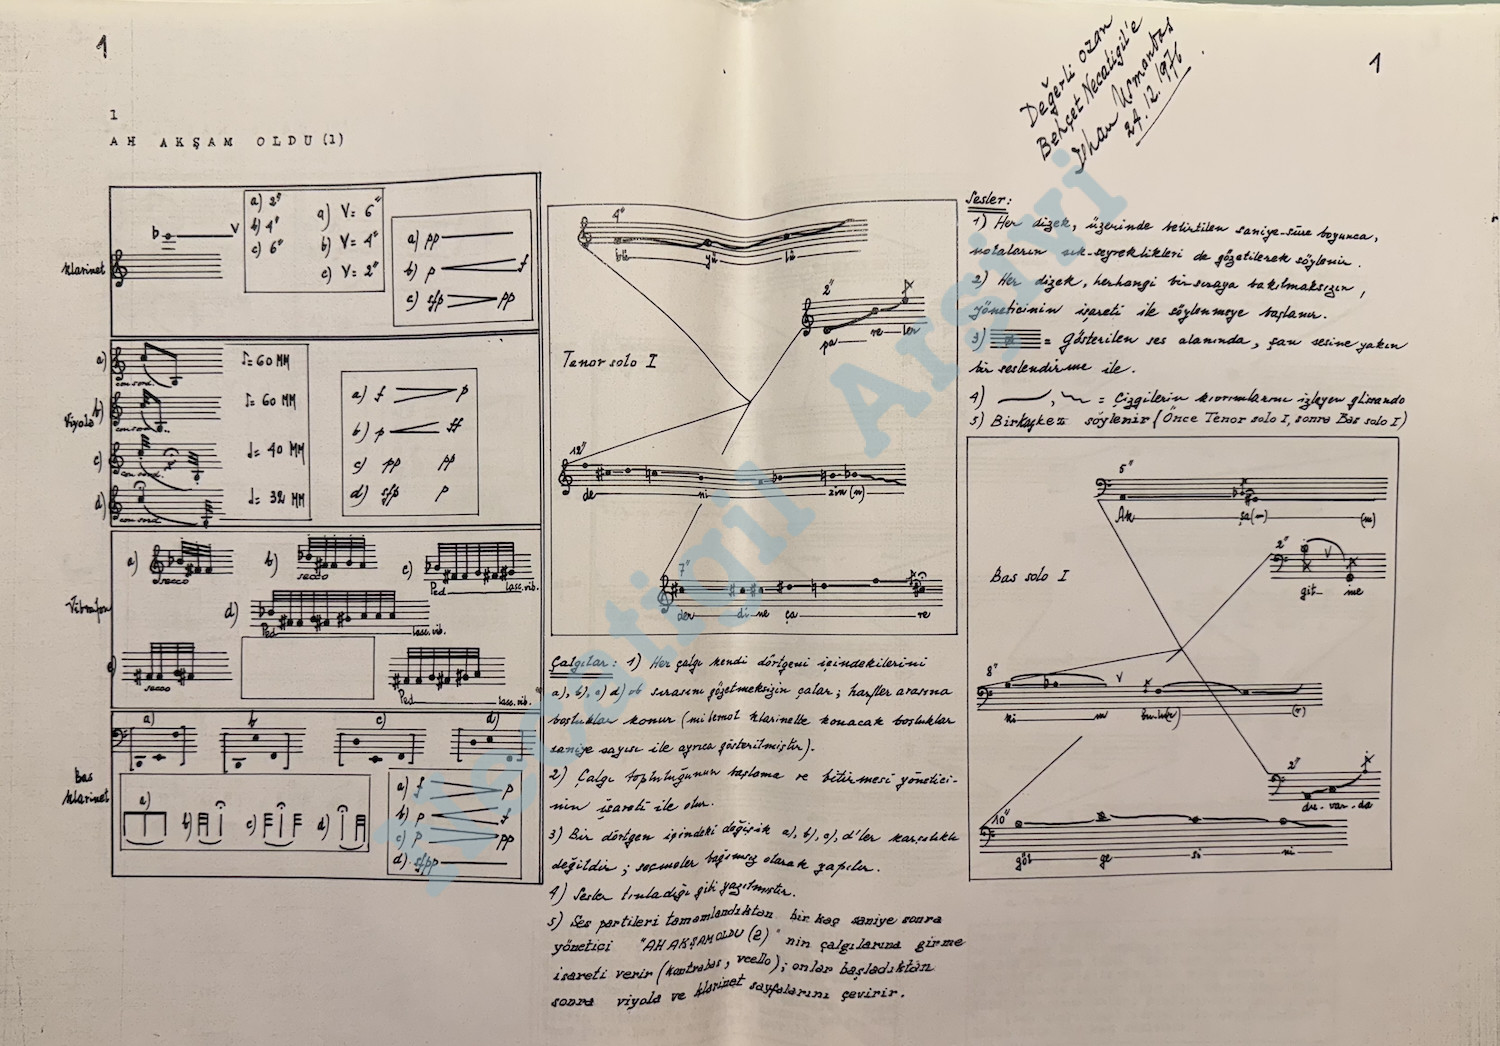 1
1
Değerli ozan
Behçet Necatigil'e
İlhan Usmanbaş
24.12.1976
1
AH AKŞAM OLDU (1)
Klarinet
b
V
a) 2"
b) 4"
c) 6"
a) V = 6"
b) V = 4"
c) V = 2"
a) pp
b) p f
c) sfp pp
Viyola
a)
con sord.
= 60 MM
b)
con sord.
= 60 MM
c)
con sord.
= 40 MM
d)
con sord.
= 32 MM
a) f p
b) p ff
c) pp pp
d) sfp p
Vibrafon
a)
secco
b)
secco
c)
Ped lasc. vib.
d)
Ped lasc. vib.
secco
Ped lasc. vib.
Bas
Klarinet
a) b c) d)
a) b) c) d)
a) f p
b) p f
c) p pp
d) sfpp
Tenor solo I
4"
bü yü lü
2"
pa re ler
12"
de ni zin (n)
7"
der di ne ça re
Çalgılar: 1) Her çalgı kendi dörtgeni içindekilerini
a), b), c) d) vb sırasını gözetmeksizin çalar; harfler arasına
boşluklar konur (mi bemol klarinette konacak boşluklar
saniye sayısı ile ayrıca gösterilmiştir).
2) Çalgı topluluğunun başlama ve bitirmesi yönetici-
nin işareti ile olur.
3) Bir dörtgen içindeki değişik a), b), c), d'ler karşılıklı
değildir; seçmeler bağımsız olarak yapılır.
4) Sesler tınladığı gibi yazılmıştır.
5) Ses partileri tamamlandıktan bir kaç saniye sonra
yönetici "AH AKŞAM OLDU (2)" nin çalgılarına girme
işareti verir (kontrabas, vcello); onlar başladıktan
sonra viyola ve klarinet sayfalarını çevirir.
Sesler:
1) Her dizek, üzerinde belirtilen saniye-süre boyunca,
notaların sık-seyreklikleri de gözetilerek söylenir.
2) Her dizek, herhangi bir sıraya bakılmaksızın,
yöneticinin işareti ile söylenmeye başlanır.
3) = Gösterilen ses alanında, şan sesine yakın
bir seslendirme ile.
4) , = Çizgilerin kıvrımlarını izleyen glissando
5) Birkaçkez söylenir (Önce Tenor solo I, sonra Bas solo I)
Bas solo I
5"
Ak şa(-) (m)
2"
V
git me
8"
V
ni n
2"
du var da
10"
göl ge si ni
Necatigil Arşivi